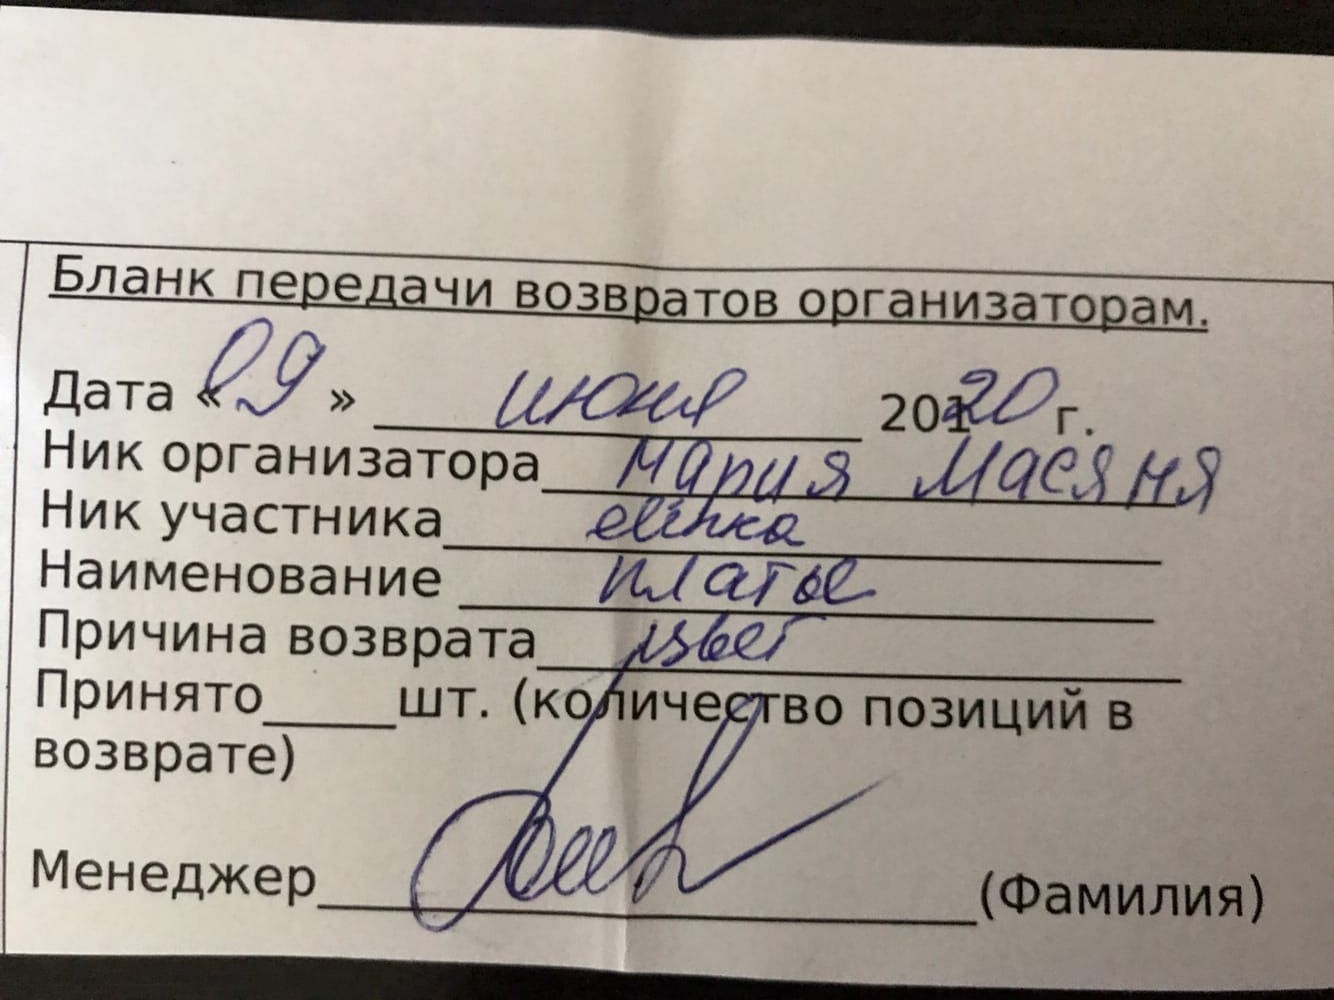 Бланк передачи возвратов организаторам.
Дата «09» июня 2020 г.
Ник организатора Мария Масяня
Ник участника elinka
Наименование платье
Причина возврата цвет
Принято_____шт. (количество позиций в
возврате)
Менеджер (Фамилия)